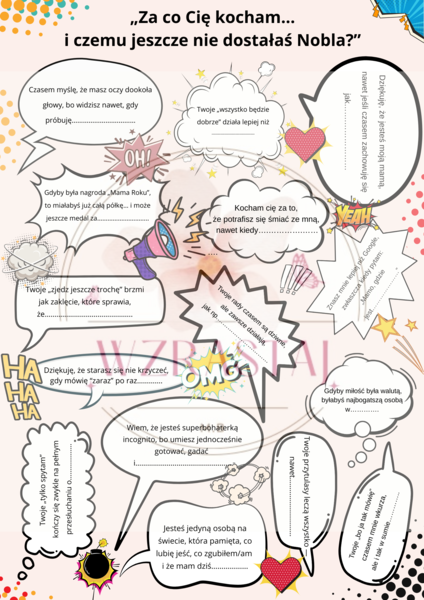 „Za co Cię kocham...
i czemu jeszcze nie dostałaś Nobla?”
Czasem myślę, że masz oczy dookoła
głowy, bo widzisz nawet, gdy
próbuję..........................
Twoje „wszystko będzie
dobrze” działa lepiej niż
......................
Dziękuję, że jesteś moją mamą,
nawet jeśli czasem zachowuję się
jak..............
OH!
Gdyby była nagroda „Mama Roku”,
to miałabyś już całą półkę... i może
jeszcze medal za......................
Kocham cię za to,
że potrafisz się śmiać ze mną,
nawet kiedy……………………
....
YEAH
Znasz mnie lepiej niż Google
zwłaszcza kiedy pytam:
„Mamo, gdzie
jest..............”
Twoje „zjedz jeszcze trochę” brzmi
jak zaklęcie, które sprawia,
że............. ..............................
Twoje rady czasem są dziwne,
ale zawsze działają,
jak np.....................
WZRASTAJ
HA
HA
HA
Dziękuję, że starasz się nie krzyczeć,
gdy mówię “zaraz” po raz.............
OMG
Gdyby miłość była walutą,
byłabyś najbogatszą osobą
w…………
Wiem, że jesteś superbohaterką
incognito, bo umiesz jednocześnie
gotować, gadać
i......................................
Twoje „tylko spytam”
kończy się zwykle na pełnym
przesłuchaniu o..............
Twoje przytulasy leczą wszystko –
nawet.....................
Twoje „bo ja tak mówię”
czasem mnie wkurza,
ale i tak w sumie ..............
Jesteś jedyną osobą na
świecie, która pamięta, co
lubię jeść, co zgubiłem/am
i że mam dziś..................